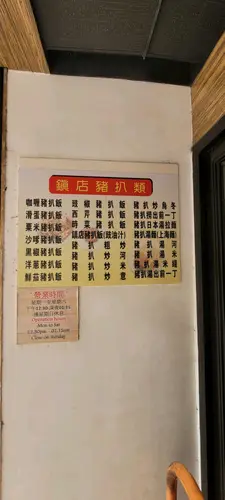 鎮店豬扒類
咖喱豬扒飯
滑蛋豬扒飯
粟米豬扒飯
沙嗲豬扒飯
黑椒豬扒飯
洋葱豬扒飯
鮮茄豬扒飯
豉椒豬扒飯
西芹豬扒飯
時菜豬扒飯
鎮店豬扒飯(豉油汁)
豬扒炒粗
豬扒炒河
豬扒炒米
豬扒炒意
豬扒炒烏冬
豬扒撈出前一丁
豬扒日本湯拉麵
豬扒湯麵(上海麵)
豬扒湯河
豬扒湯米
豬扒湯米綫
豬扒湯出前一丁
營業時間
Operation hours
Mon to Sat